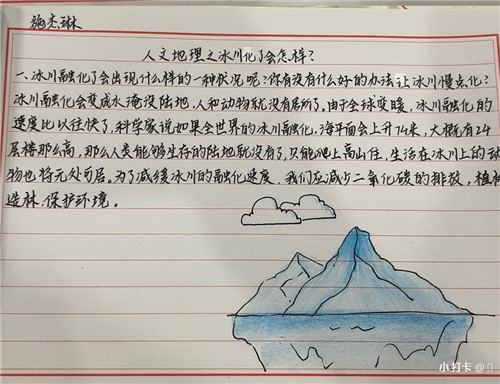 施杰琳
人文地理之冰川化了会怎样?
一、冰川融化了会出现什么样的一种状况呢?你有没有什么好的办法让冰川慢点化?
冰川融化会变成水淹没陆地,人和动物就没有居所了。由于全球变暖,冰川融化的
速度比以往快了,科学家说如果全世界的冰川融化,海平面会上升74米,大概有24
层楼那么高,那么人类能够生存的陆地就没有了,只能爬上高山住,生活在冰川上的动
物也将无处可居。为了减缓冰川的融化速度,我们应减少二氧化碳的排放,植树
造林,保护环境。
小打卡@